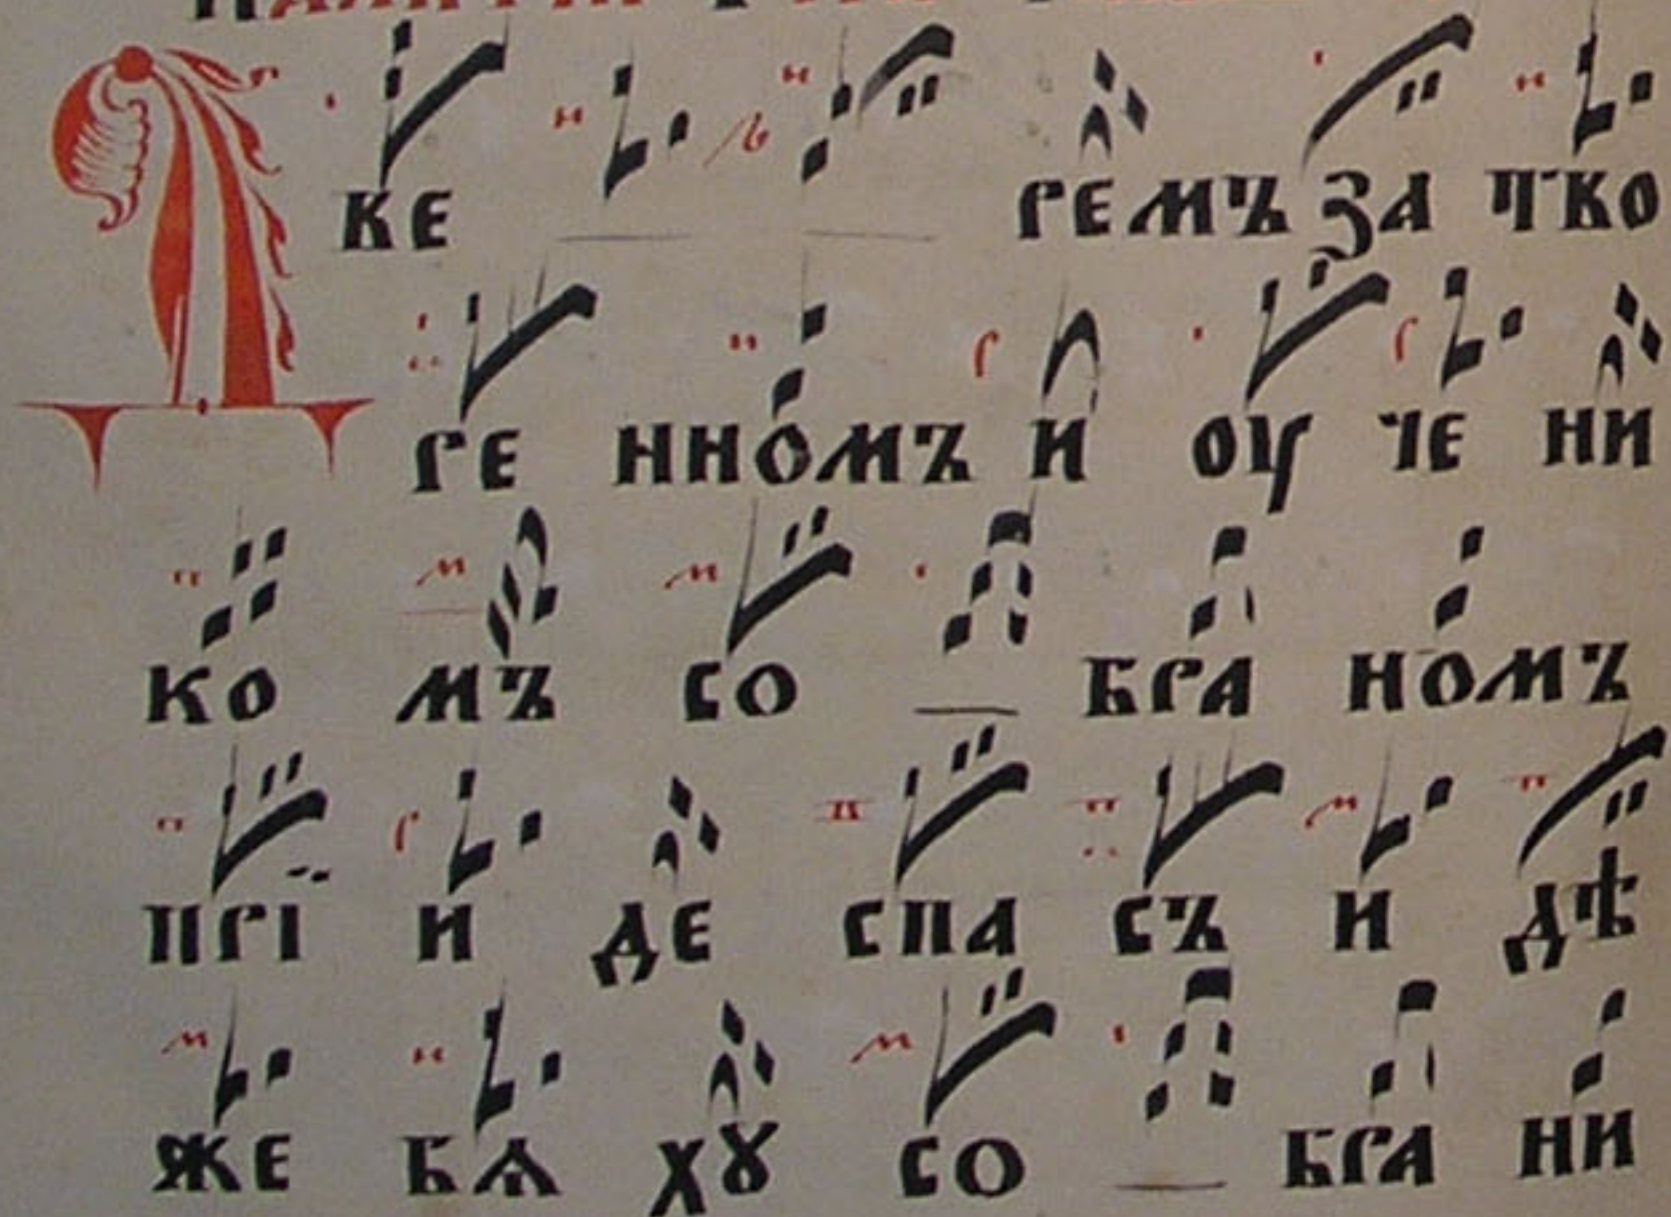 Две ремъ за т'во
ре нномъ и оу че ни
ко мъ со бра номъ
прї и де спа съ и дѣ
же бѧ хꙋ со бра ни